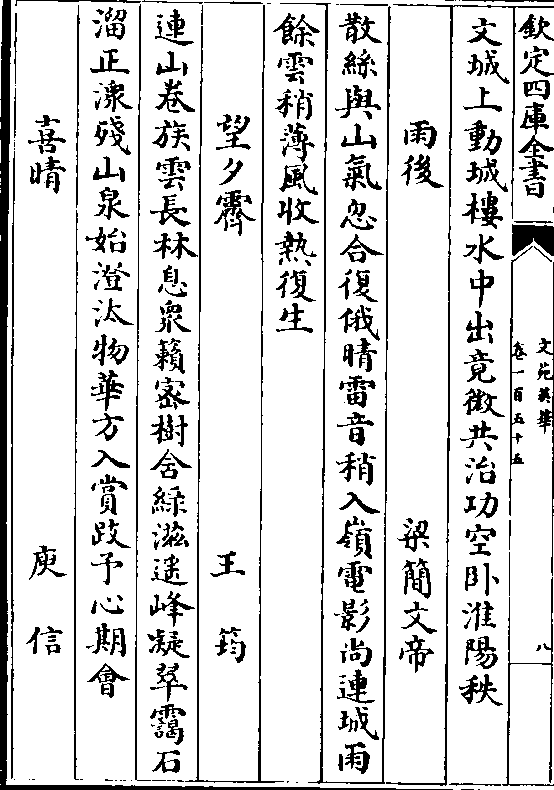 欽定四庫全書
文苑英華
卷一百五十五
八
文城上動城樓水中出竟微共治功空卧淮陽秩
雨後 梁簡文帝
散絲與山氣忽合復俄晴雷音稍入嶺電影尚連城雨
餘雲稍薄風收熱復生
望夕霽 王筠
連山卷族雲長林息衆籟宻樹含緑滋遥峰凝翠靄石
溜正潨殘山泉始澄汰物華方入賞跂予心期會
喜晴 庾信